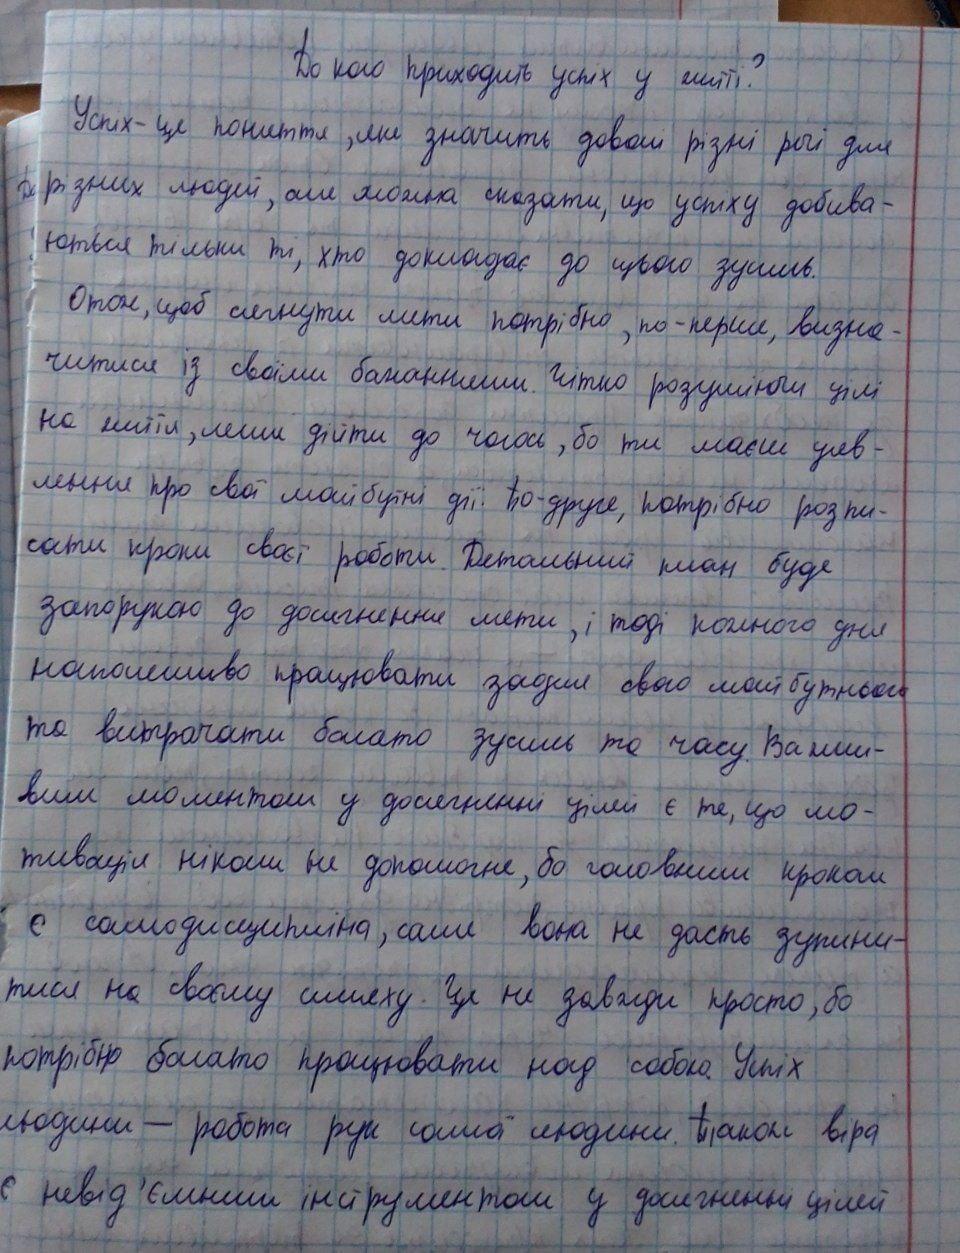 До кого приходить успіх у житті?
Успіх - це поняття, яке значить доволі різні речі для
різних людей, але можна сказати, що успіху добива-
ються тільки ті, хто докладає до цього зусиль.
Отож, щоб сягнути мети потрібно, по-перше, визна-
читися із своїми бажаннями. Чітко розуміючи цілі
на життя, легше дійти до чогось, бо ти маєш уяв-
лення про свої майбутні дії. По-друге, потрібно розпи-
сати кроки своєї роботи. Детальний план буде
запорукою до досягнення мети, і тоді кожного дня
наполегливо працювати задля свого майбутнього
та витрачати багато зусиль та часу. Важли-
вим моментом у досягненні цілей є те, що мо-
тивація ніколи не допоможе, бо головним кроком
є самодисципліна, саме вона не дасть зупини-
тися на своєму шляху. Це не завжди просто, бо
потрібно багато працювати над собою. Успіх
людини — робота рук самої людини. Також віра
є невід'ємним інструментом у досягненні цілей